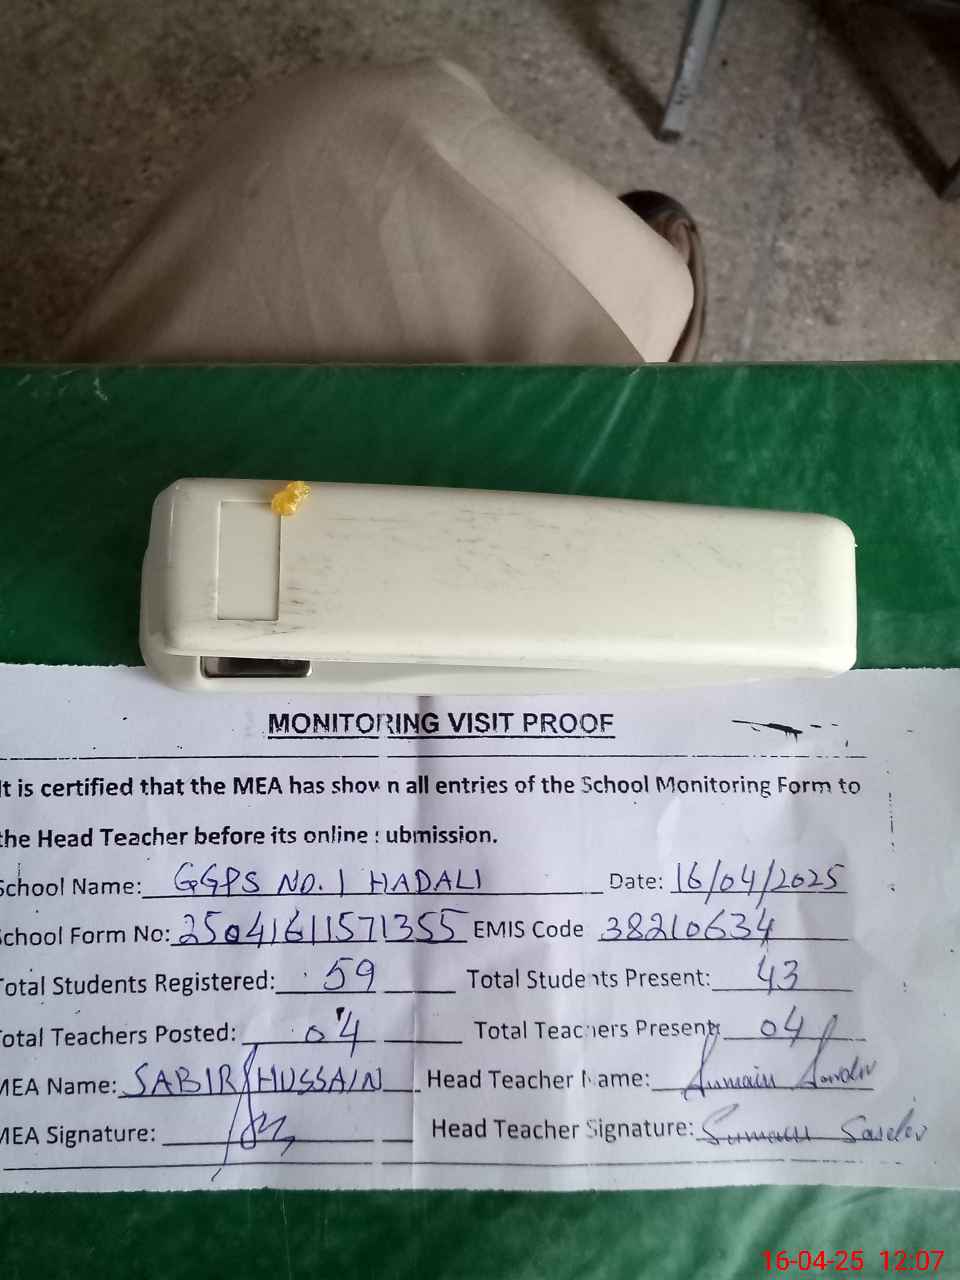 MONITORING VISIT PROOF
It is certified that the MEA has shown all entries of the School Monitoring Form to
the Head Teacher before its online submission.
School Name: GGPS NO. 1 HADALI Date: 16/04/2025
School Form No: 25041611571355 EMIS Code 38210634
Total Students Registered: 59 Total Students Present: 43
Total Teachers Posted: 04 Total Teachers Present: 04
MEA Name: SABIR HUSSAIN Head Teacher Name:
MEA Signature: Head Teacher Signature:
16-04-25 12:07